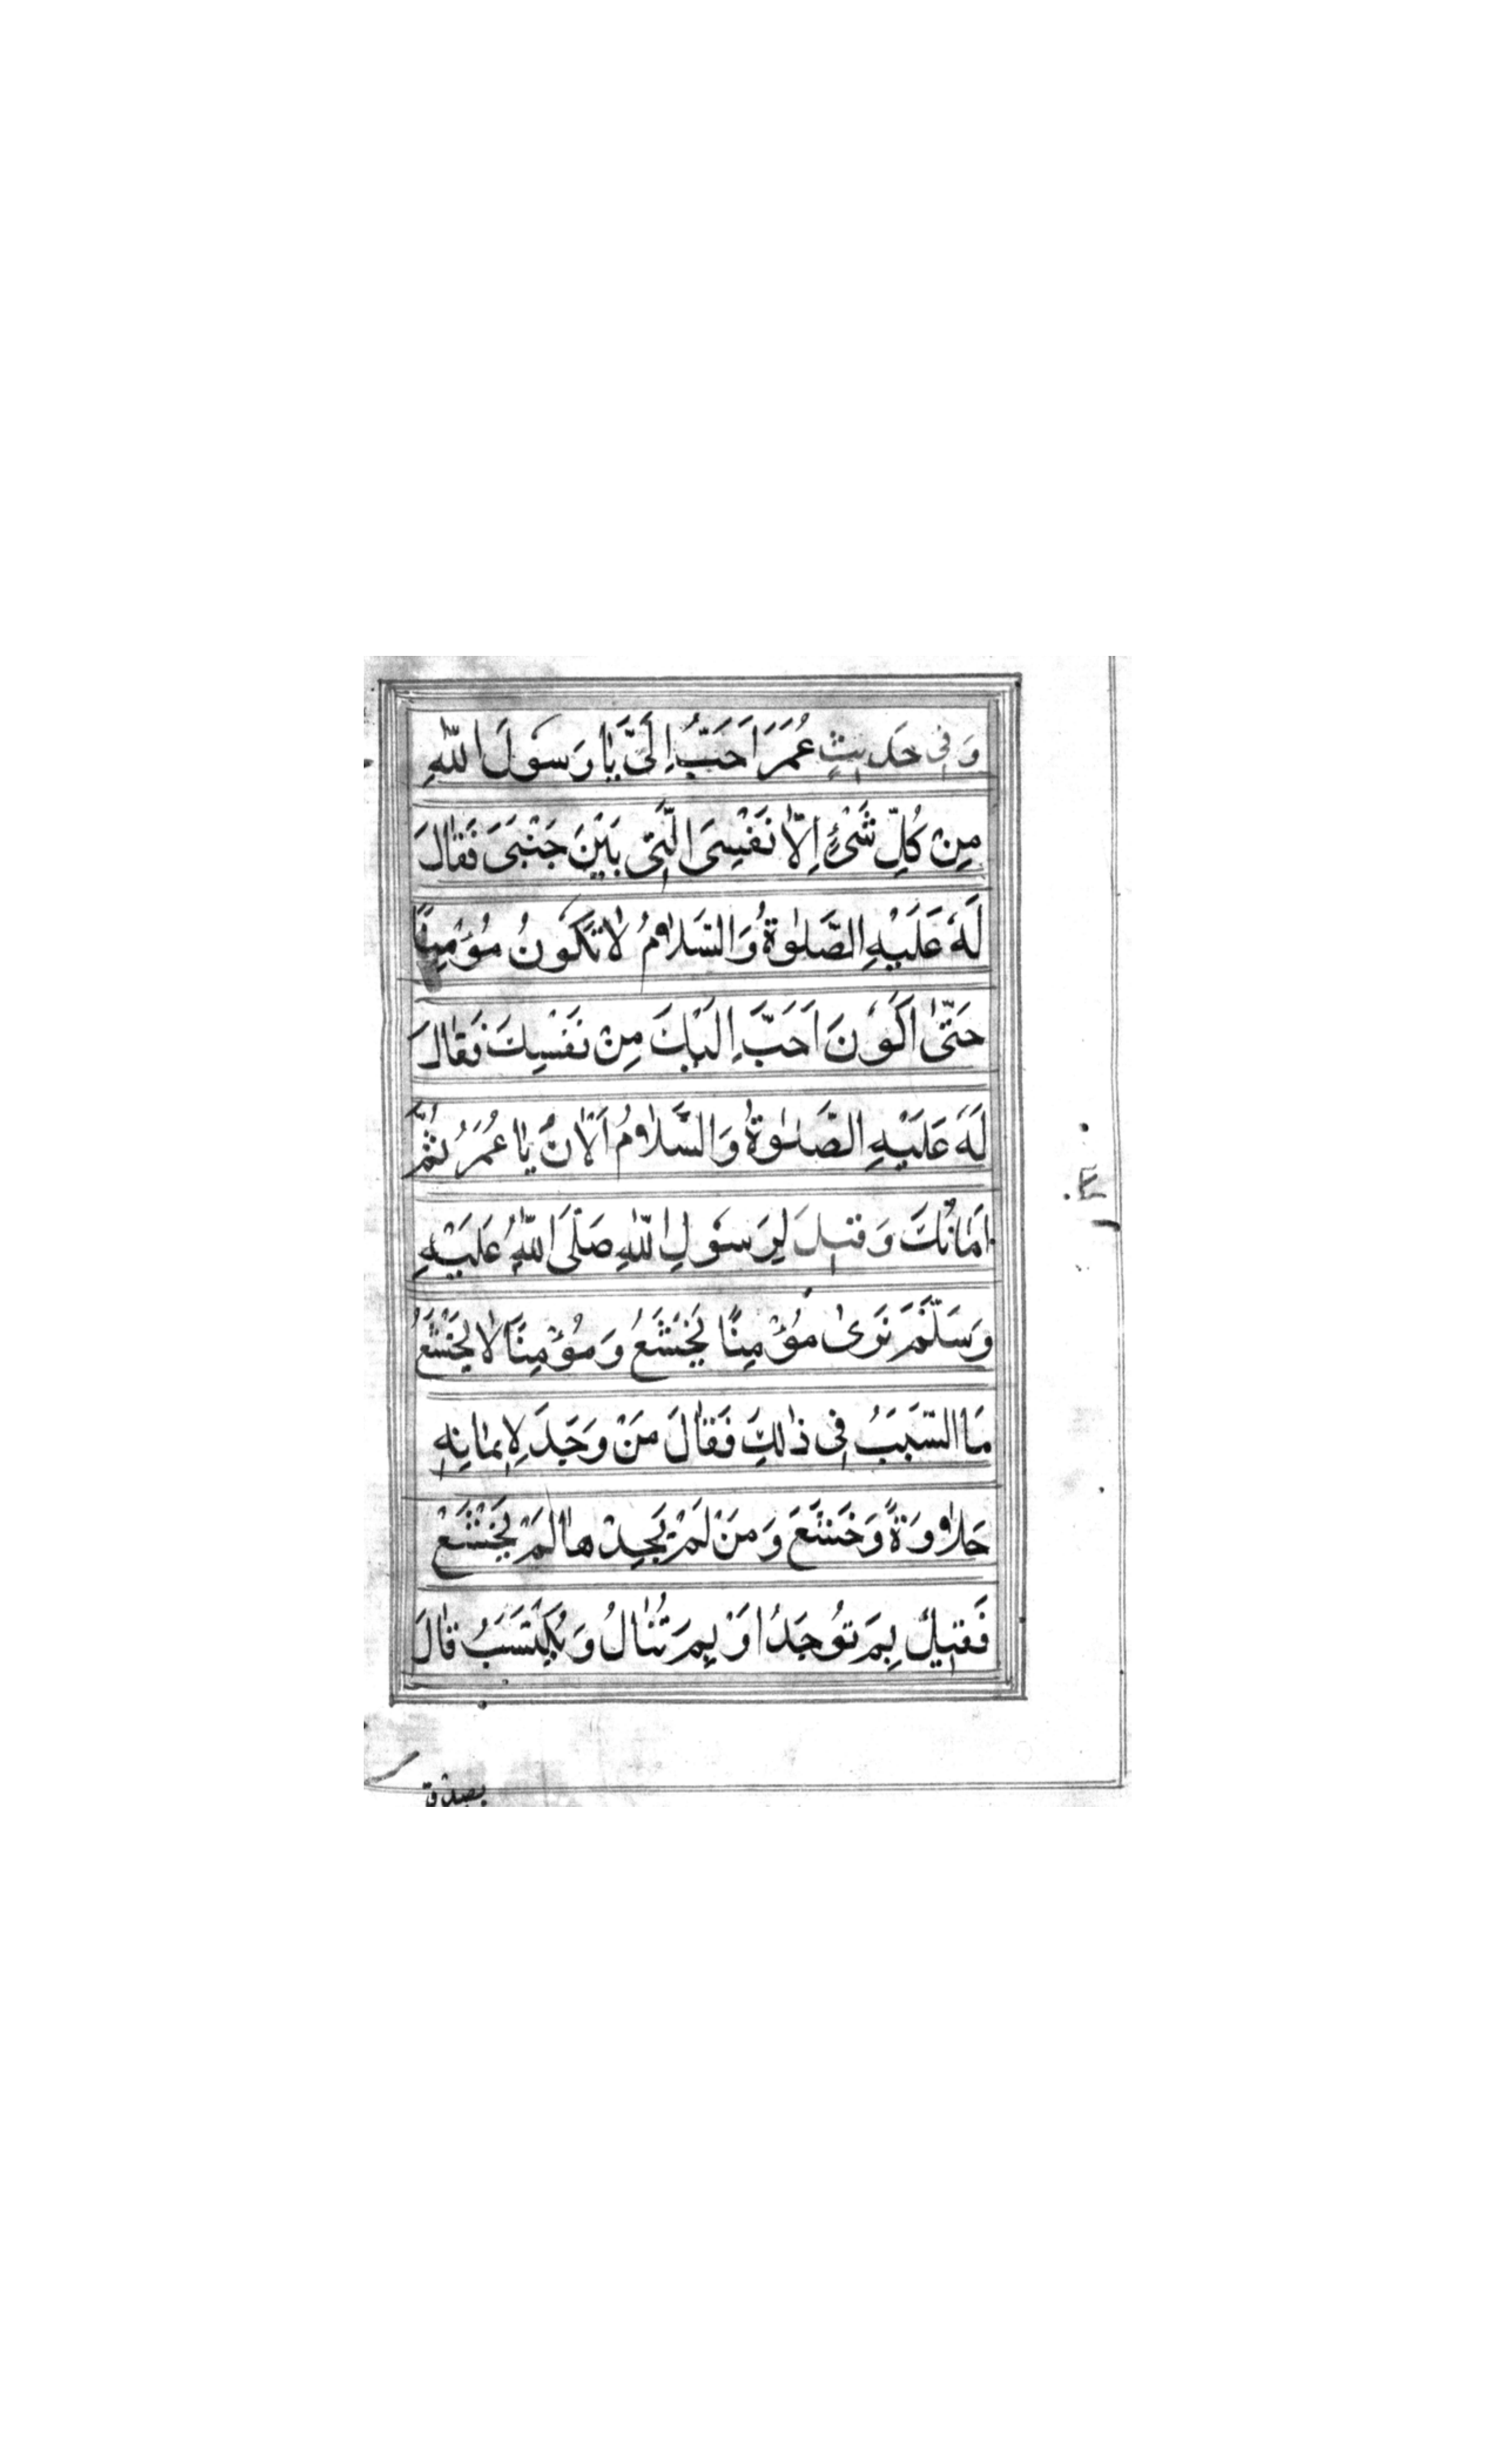 وَفِى حَدِيثِ عُمَرَ اَحَبُّ اِلَىَّ يَا رَسُولَ اللّٰهِ
مِنْ كُلِّ شَىْءٍ اِلَّا نَفْسِىَ الَّتِى بَيْنَ جَنْبَىَّ فَقَالَ
لَهُ عَلَيْهِ الصَّلٰوةُ وَالسَّلَامُ لَا تَكُونُ مُؤْمِنًا
حَتّٰى اَكُونَ اَحَبَّ اِلَيْكَ مِنْ نَفْسِكَ فَقَالَ
لَهُ عَلَيْهِ الصَّلٰوةُ وَالسَّلَامُ اَلْاٰنَ يَا عُمَرُ تُمَّ
اِمَانُكَ وَقِيلَ لِرَسُولِ اللّٰهِ صَلَّى اللّٰهُ عَلَيْهِ
وَسَلَّمَ نَرٰى مُؤْمِنًا يَخْشَعُ وَمُؤْمِنًا لَا يَخْشَعُ
مَا السَّبَبُ فِى ذٰلِكَ فَقَالَ مَنْ وَجَدَ لِاِيمَانِهِ
حَلَاوَةً وَخَشَعَ وَمَنْ لَمْ يَجِدْهَا لَمْ يَخْشَعْ
فَقِيلَ بِمَ تُوجَدُ اَوْ بِمَ تُنَالُ وَيُكْتَسَبُ قَالَ
بصدق